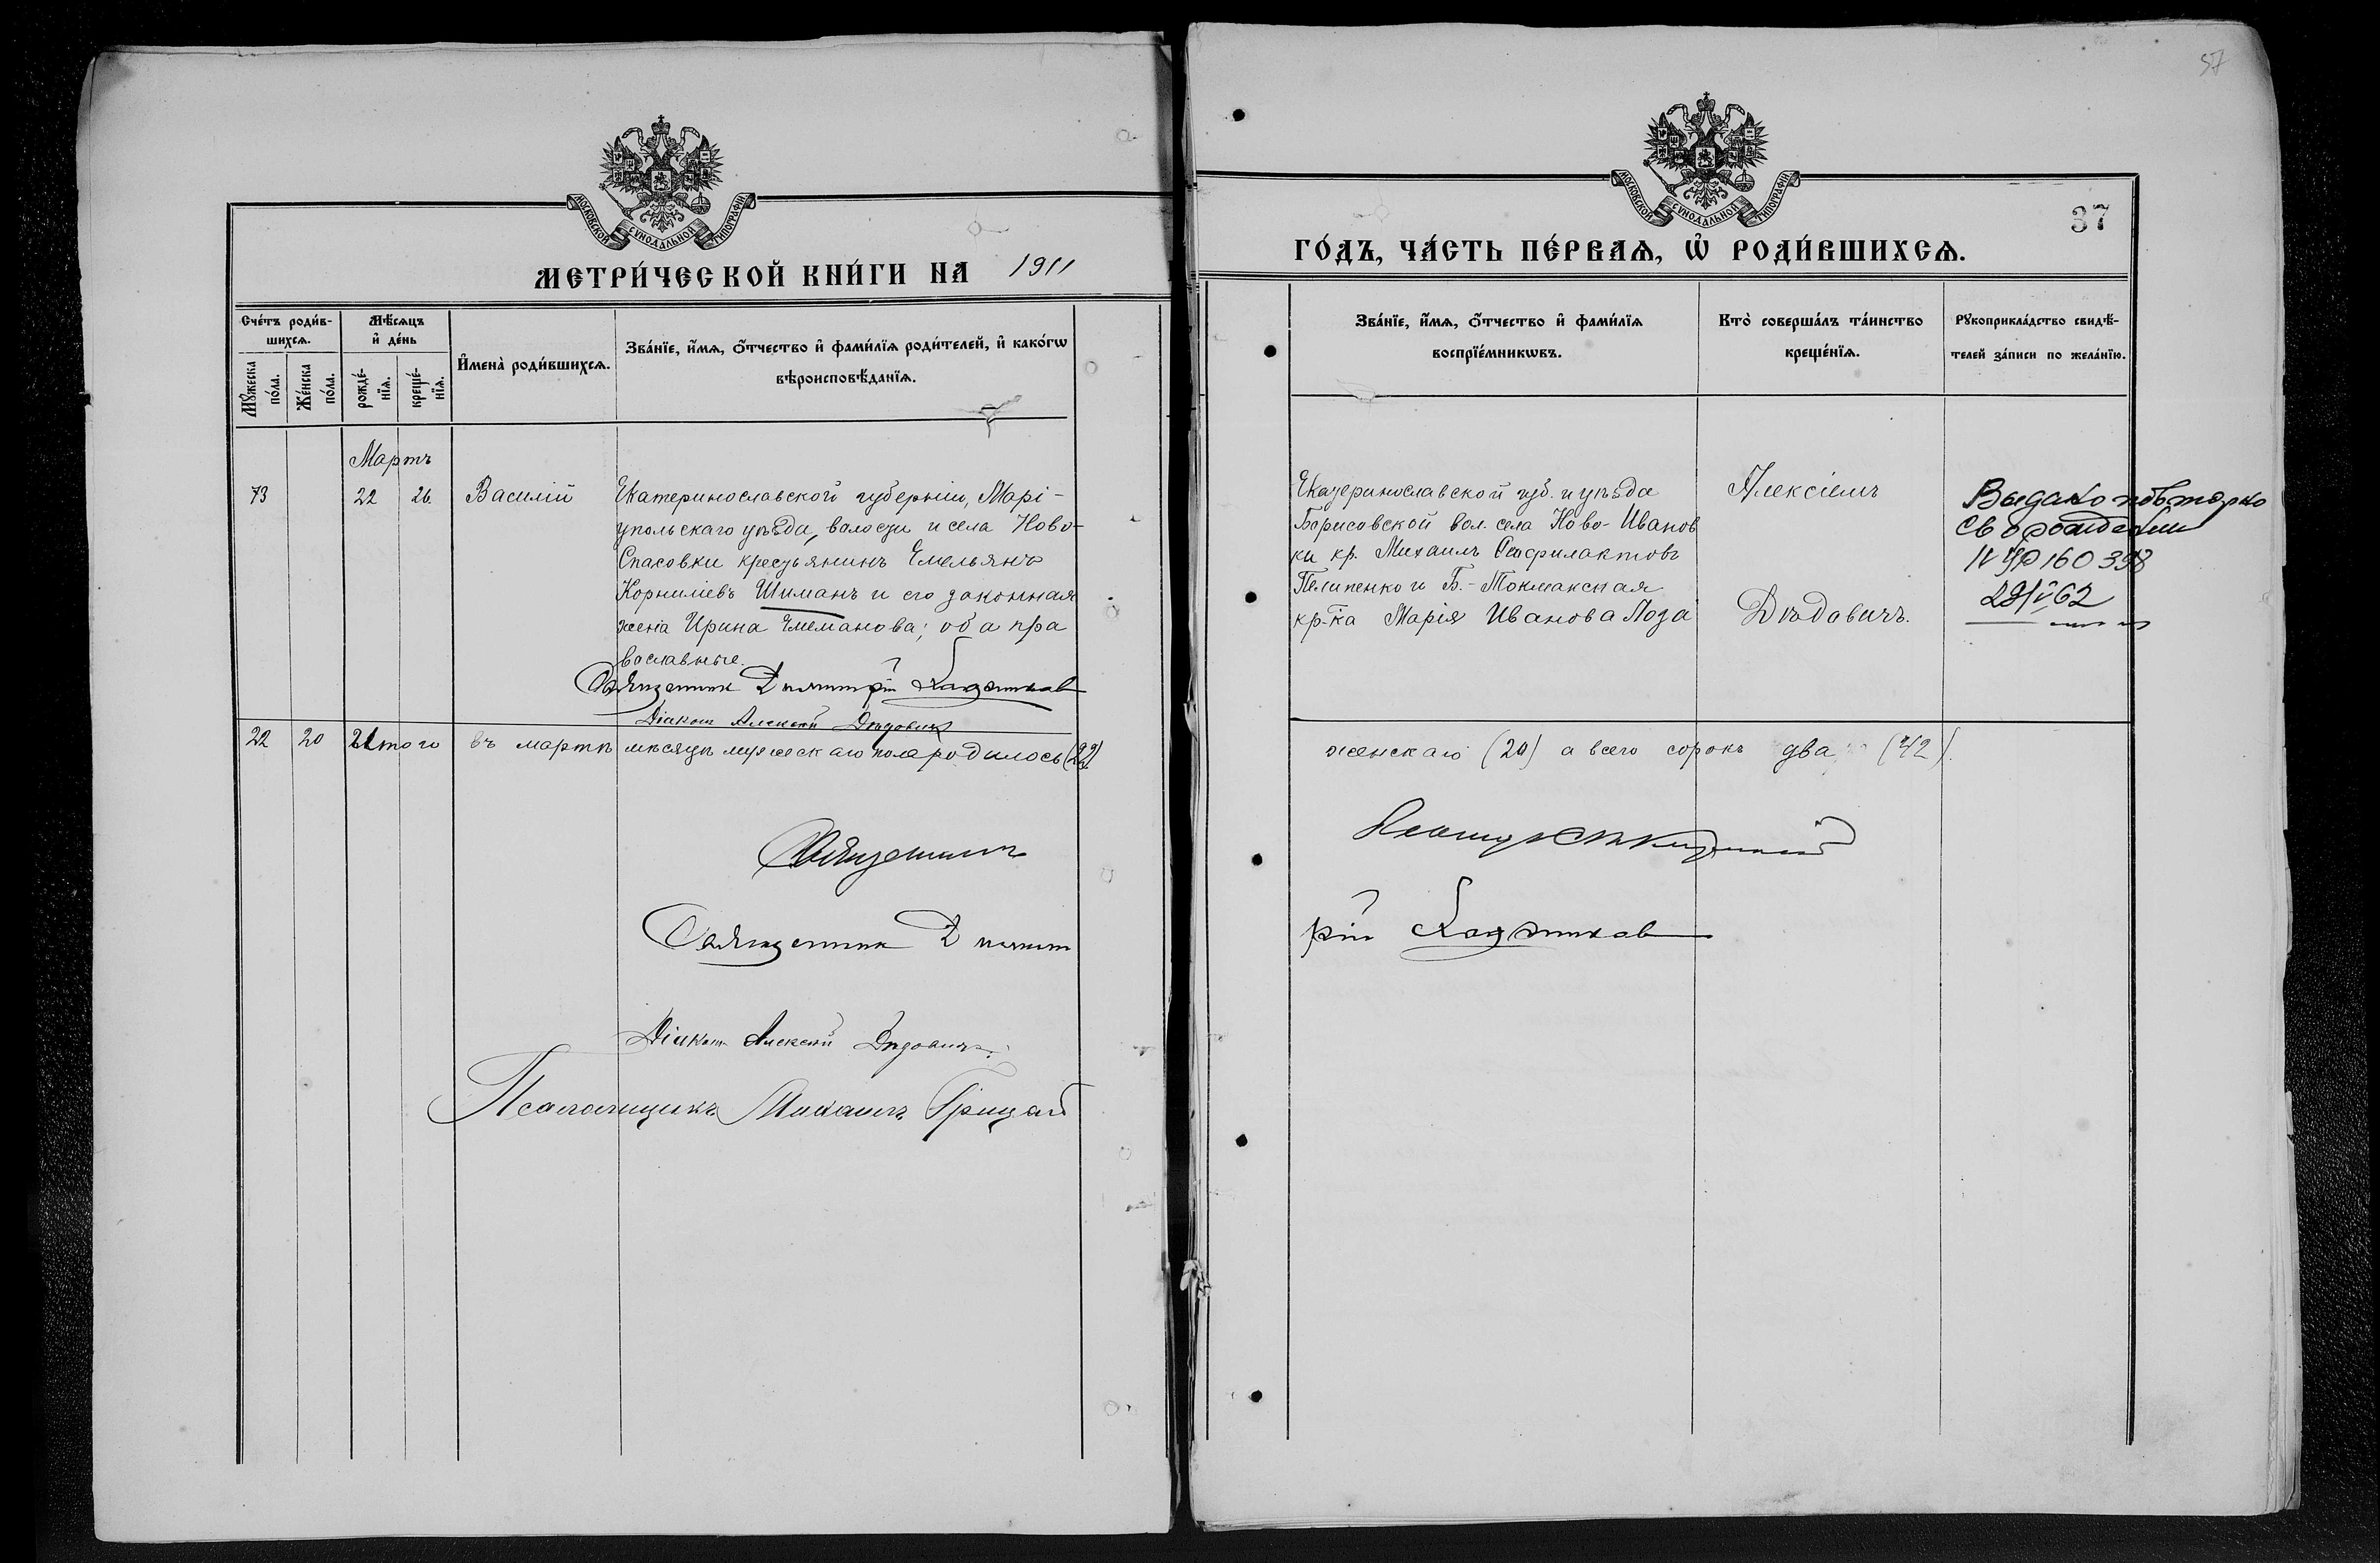 57
МОСКОВСКОЙ СУНОДАЛЬНОЙ ТИПОГРАФІИ
МЕТРИ́ЧЕСКОЙ КНИ́ГИ НА 1911
Сче́тъ роди́в-
шихсѧ.
Мꙋ́жеска по́ла.
Же́нска по́ла.
Мѣ́сѧцъ
и҆ де́нь
рожде́-
нїѧ.
креще́-
нїѧ.
И҆мена̀ роди́вшихсѧ.
Зва́нїе, и҆́мѧ, ѻ҆́тчество и҆ фами́лїѧ роди́телей, и҆ како́гѡ
вѣроисповѣ́данїѧ.
Мартъ
73 22 26 Василій
Екатеринославской губерніи, Марі-
упольскаго уѣзда, волости и села Ново-
Спасовки крестьянинъ Емельянъ
Корниліевъ Шиманъ и его законная
жена Ирина Емельянова; оба пра
вославные.
Священник Димитрій
Діаконъ Алексій Дѣдовичъ
22 20 Итого въ мартѣ мѣсяцѣ мужескаго пола родилось (22)
Священникъ
Священник Димит
Діаконъ Алексій Дѣдовичъ.
Псаломщикъ Михаилъ Грицай
МОСКОВСКОЙ СУНОДАЛЬНОЙ ТИПОГРАФІИ
37
ГО́ДЪ, ЧА́СТЬ ПЕ́РВАѦ, Ѡ҆ РОДИ́ВШИХСѦ.
Зва́нїе, и҆́мѧ, ѻ҆́тчество и҆ фами́лїѧ
воспрїе́мникѡвъ.
Кто̀ соверша́лъ та́инство
креще́нїѧ.
Рꙋкоприкла́дство свидѣ́-
телей за́писи по жела́нїю.
Екатеринославской губ. и уѣзда
Борисовской вол. села Ново-Иванов
ки кр. Михаилъ Феофилактовъ
Пелипенко и Б.-Токмакская
кр-ка Марія Иванова Лоза
Алексіемъ
Дѣдовичъ.
Выдано повторно
св о рождении
160398
29/V 62
женскаго (20) а всего сорокъ два (42).
рій